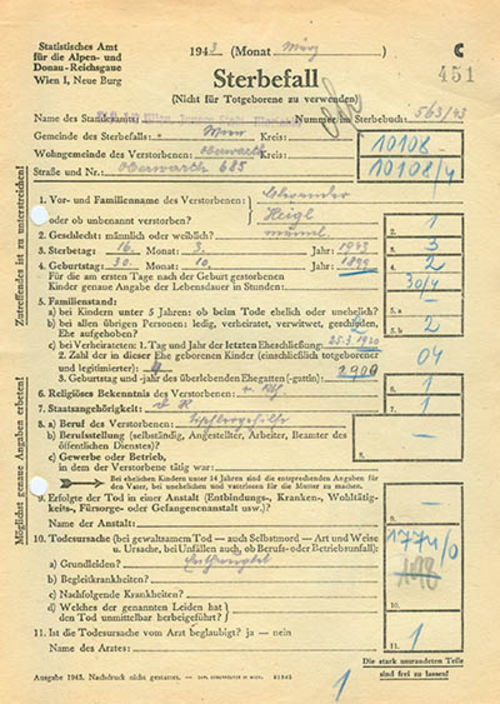 Statistisches Amt
für die Alpen- und
Donau-Reichsgaue
Wien I, Neue Burg
1943 (Monat März)
C
451
Sterbefall
(Nicht für Totgeborene zu verwenden)
Name des Standesamtes: Nummer im Sterbebuch: 563/43
Gemeinde des Sterbefalls: Wien Kreis: 10108
Wohngemeinde des Verstorbenen: Oberwarth Kreis:
Straße und Nr.: Oberwarth 685 10108/4
Zutreffendes ist zu unterstreichen!
1. Vor- und Familienname des Verstorbenen: Alexander
oder ob unbenannt verstorben? Heigl
2. Geschlecht: männlich oder weiblich? männl 2. 1
3. Sterbetag: 16. Monat: 3. Jahr: 1943 3. 3
4. Geburtstag: 30. Monat: 10. Jahr: 1899 4. 2
Für die am ersten Tage nach der Geburt gestorbenen
Kinder genaue Angabe der Lebensdauer in Stunden: 30/4
5. Familienstand:
a) bei Kindern unter 5 Jahren: ob beim Tode ehelich oder unehelich? 5. a —
b) bei allen übrigen Personen: ledig, verheiratet, verwitwet, geschieden,
Ehe aufgehoben? 5. b 2
c) bei Verheirateten: 1. Tag und Jahr der letzten Eheschließung: 25.3.1920
2. Zahl der in dieser Ehe geborenen Kinder (einschließlich totgeborener
und legitimierter): 4 04
3. Geburtstag und -jahr des überlebenden Ehegatten (-gattin): 2900
Möglichst genaue Angaben erbeten!
6. Religiöses Bekenntnis des Verstorbenen: 6. 1
7. Staatsangehörigkeit: D R 7. 1
8. a) Beruf des Verstorbenen: Tischlergehilfe
b) Berufsstellung (selbständig, Angestellter, Arbeiter, Beamter des
öffentlichen Dienstes)? 8. —
c) Gewerbe oder Betrieb,
in dem der Verstorbene tätig war:
Bei ehelichen Kindern unter 14 Jahren sind die entsprechenden Angaben für
den Vater, bei unehelichen und vaterlosen für die Mutter zu machen.
9. Erfolgte der Tod in einer Anstalt (Entbindungs-, Kranken-, Wohltätig-
keits-, Fürsorge- oder Gefangenenanstalt usw.)? —
Name der Anstalt: 9.
10. Todesursache (bei gewaltsamem Tod — auch Selbstmord — Art und Weise
u. Ursache, bei Unfällen auch, ob Berufs- oder Betriebsunfall): 177a/0
a) Grundleiden? Enthauptet 198
b) Begleitkrankheiten?
c) Nachfolgende Krankheiten?
d) Welches der genannten Leiden hat
den Tod unmittelbar herbeigeführt? 10.
11. Ist die Todesursache vom Arzt beglaubigt? ja — nein
Name des Arztes: 11. 1
Die stark umrandeten Teile
sind frei zu lassen!
Ausgabe 1943. Nachdruck nicht gestattet.
1